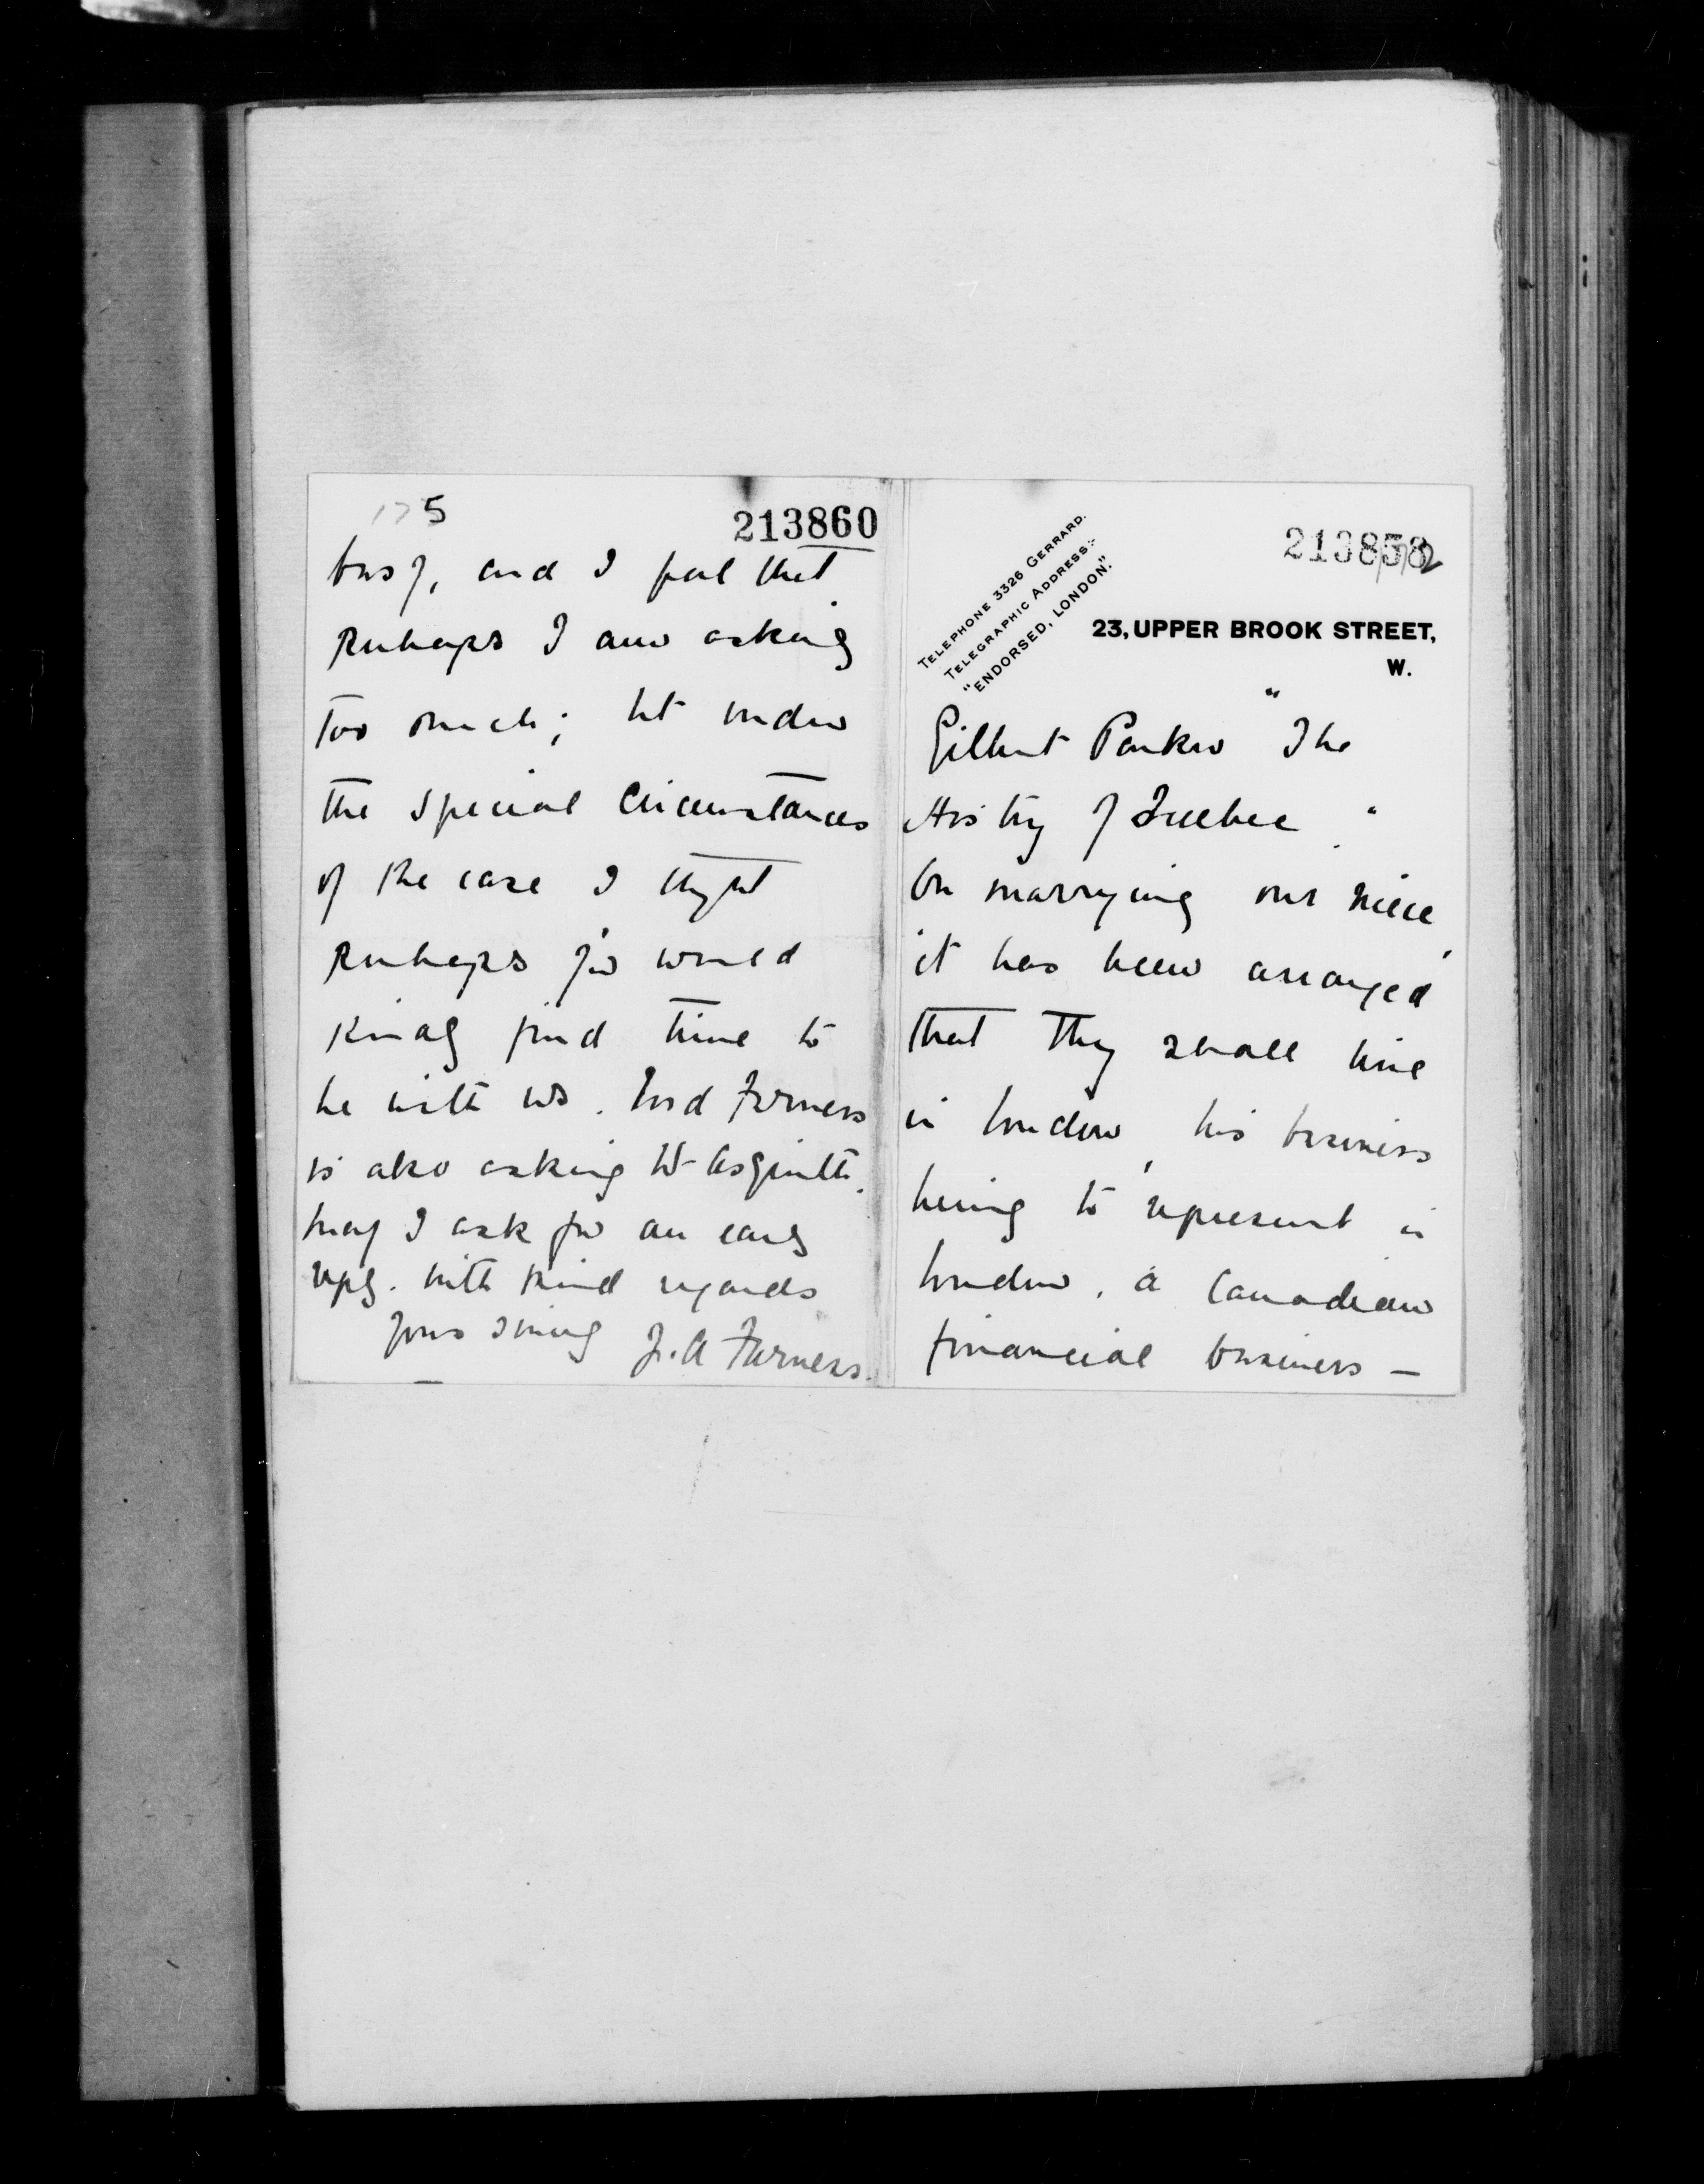 175
213860
busy, and I feel that
perhaps I am asking
too much; but under
the special circumstances
of the case I thought
perhaps you would
kindly find time to
be with us. Lord Furness
is also asking Mr Asquith.
May I ask for an early
reply. With kind regards
Yours sincerely J. A Furness.
213858
TELEPHONE 3326 GERRARD.
TELEGRAPHIC ADDRESS:-
"ENDORSED, LONDON."
23, UPPER BROOK STREET,
W.
Gilbert Parker "The
History of Quebec."
On marrying our niece,
it has been arranged
that they shall live
in London, his business
being to represent in
London, a Canadian
financial business —